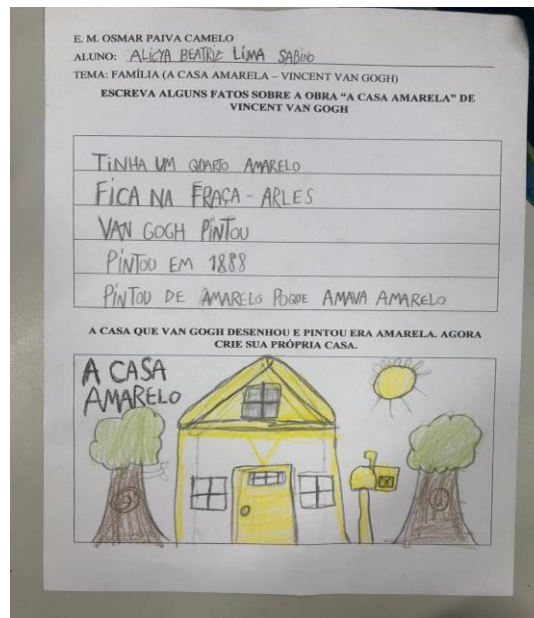 E. M. OSMAR PAIVA CAMELO
ALUNO: ALICYA BEATRIZ LIMA SABINO
TEMA: FAMÍLIA (A CASA AMARELA – VINCENT VAN GOGH)
ESCREVA ALGUNS FATOS SOBRE A OBRA “A CASA AMARELA” DE
VINCENT VAN GOGH
TINHA UM QUARTO AMARELO
FICA NA FRAÇA - ARLES
VAN GOGH PINTOU
PINTOU EM 1888
PINTOU DE AMARELO POQUE AMAVA AMARELO
A CASA QUE VAN GOGH DESENHOU E PINTOU ERA AMARELA. AGORA
CRIE SUA PRÓPRIA CASA.
A CASA
AMARELO